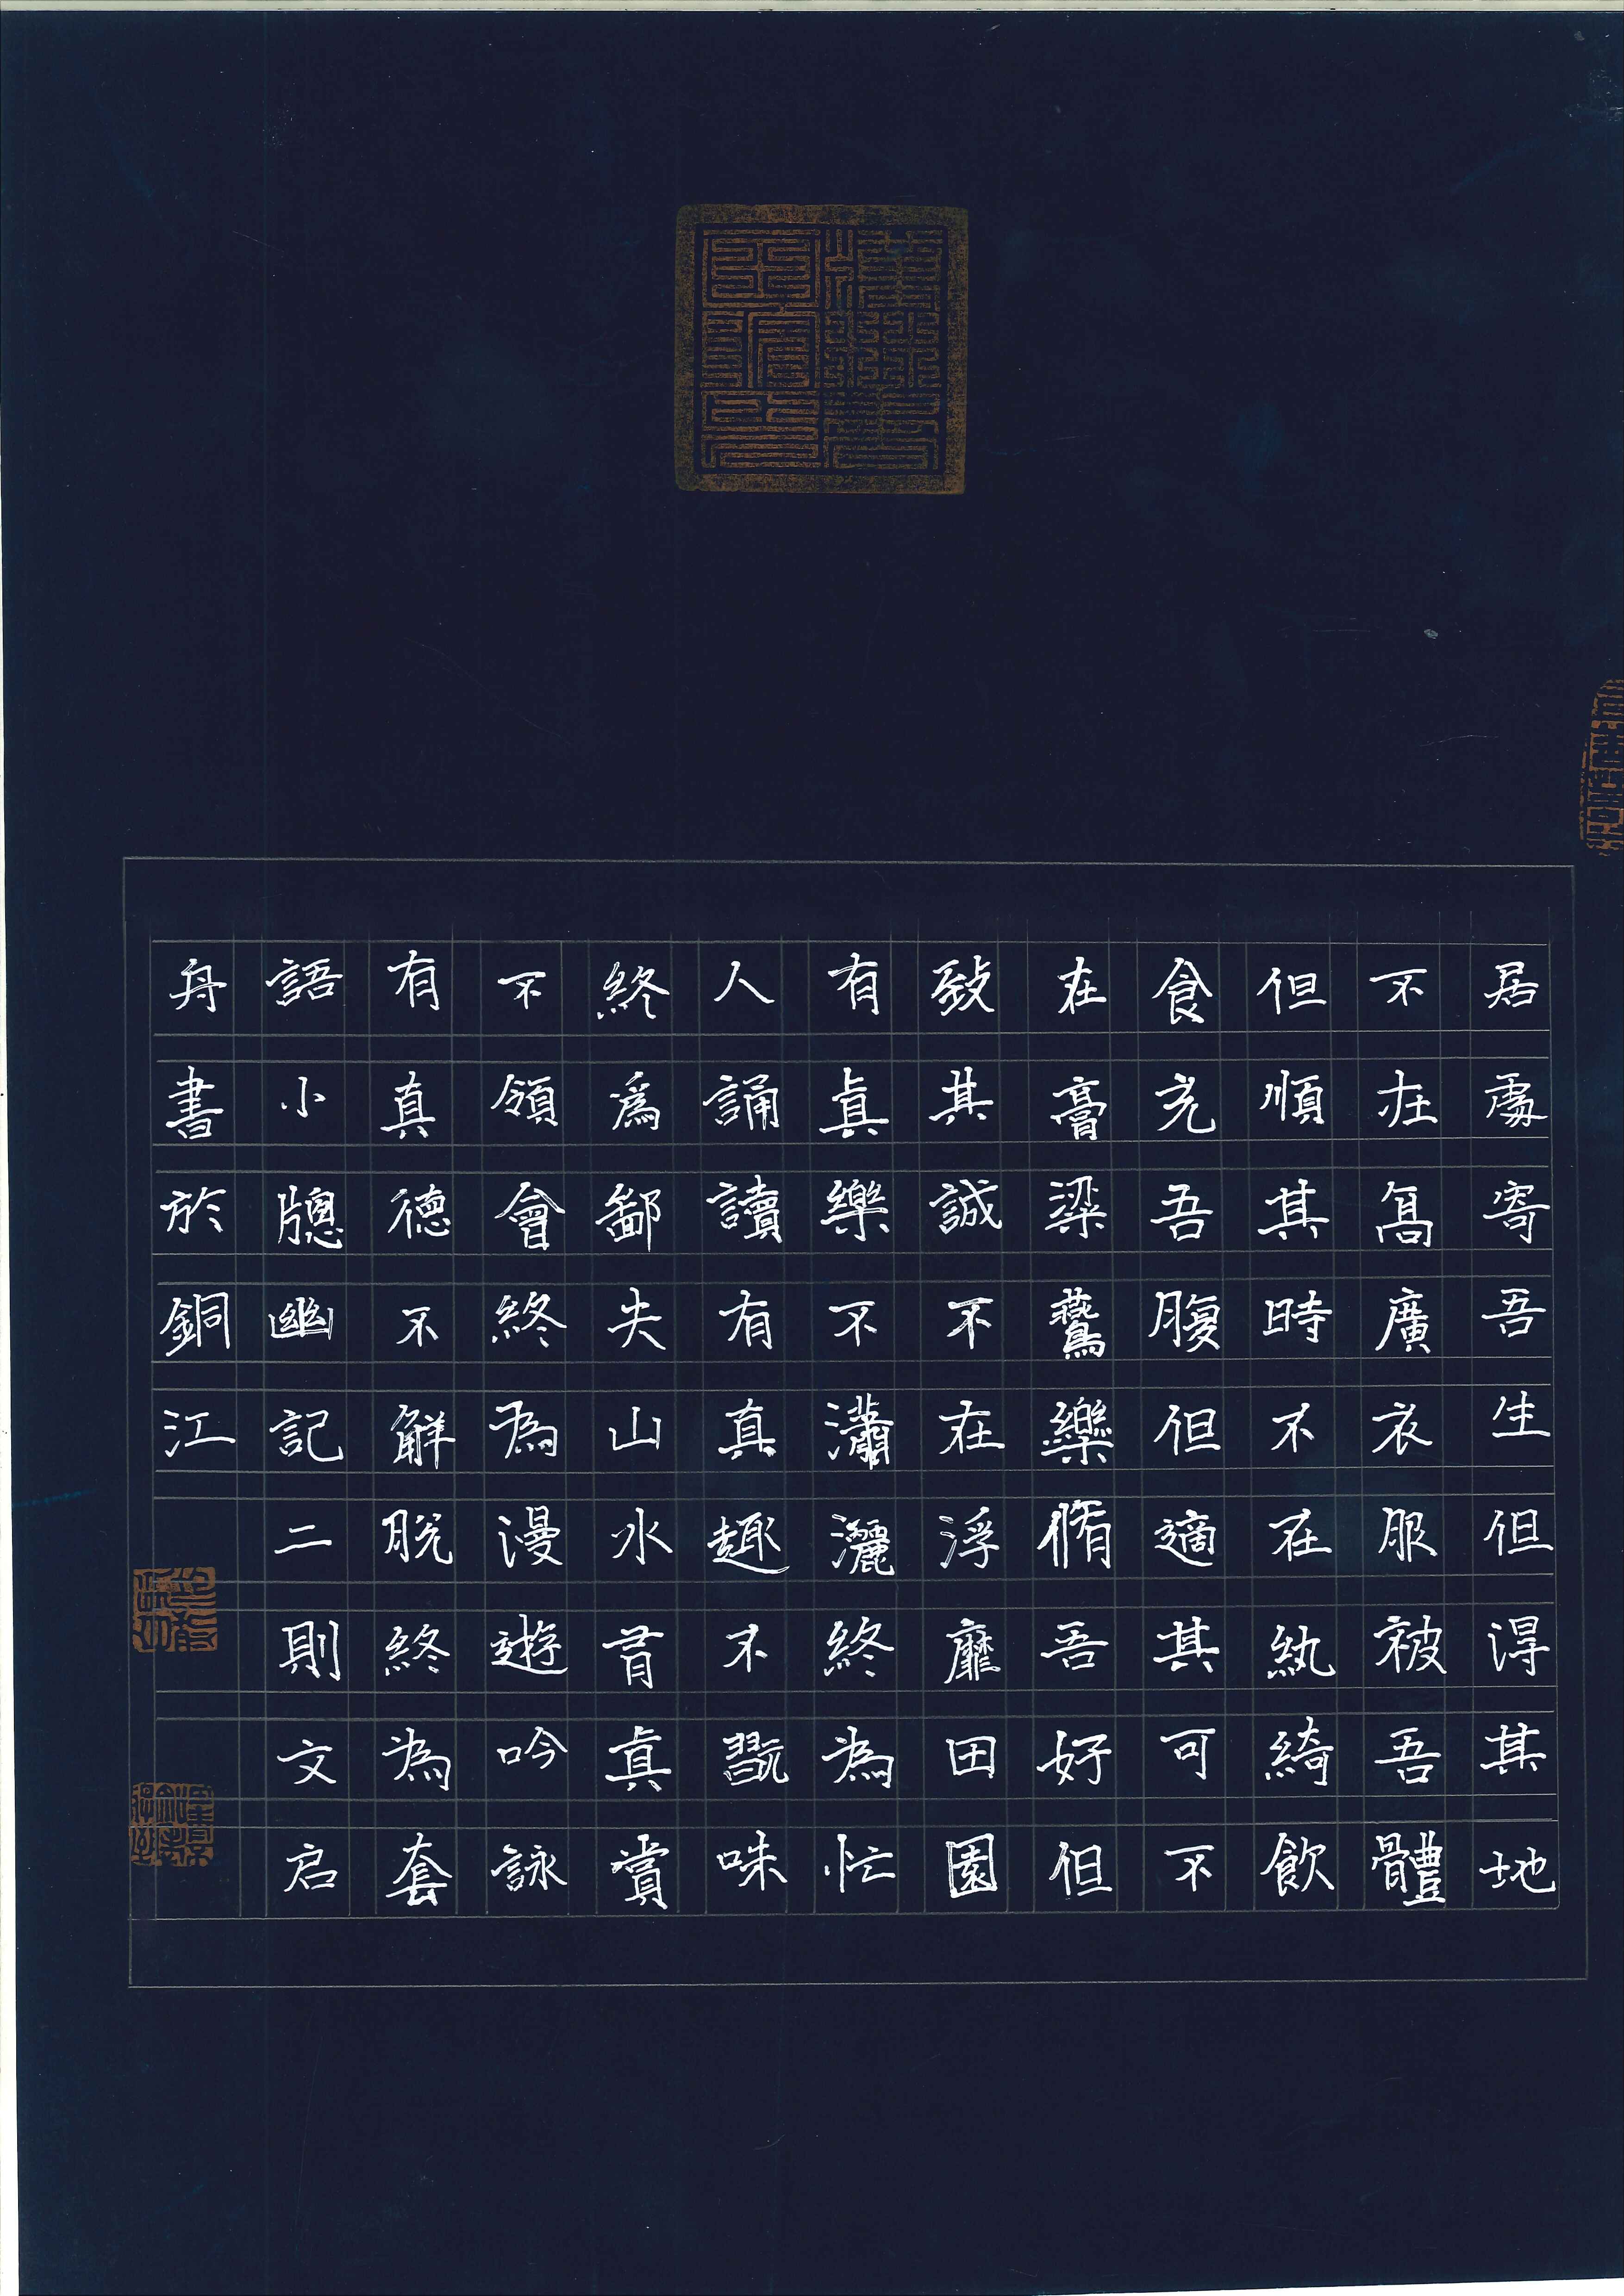 居處寄吾生但淂其地
不在髙廣衣服被吾體
但順其時不在紈綺飲
食充吾腹但適其可不
在膏梁鷰樂脩吾好但
致其誠不在浮靡田園
有眞樂不瀟灑終為忙
人誦讀有真趣不翫味
終爲鄙夫山水有真賞
不領會終為漫遊吟詠
有真德不解脫終為套
語小牕幽記二則文启
舟書於銅江